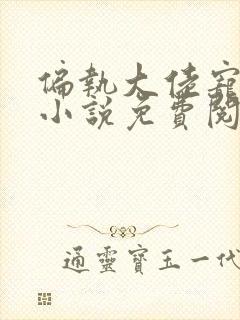 偏執大佬寵
小說免費閱
通靈寶玉一代